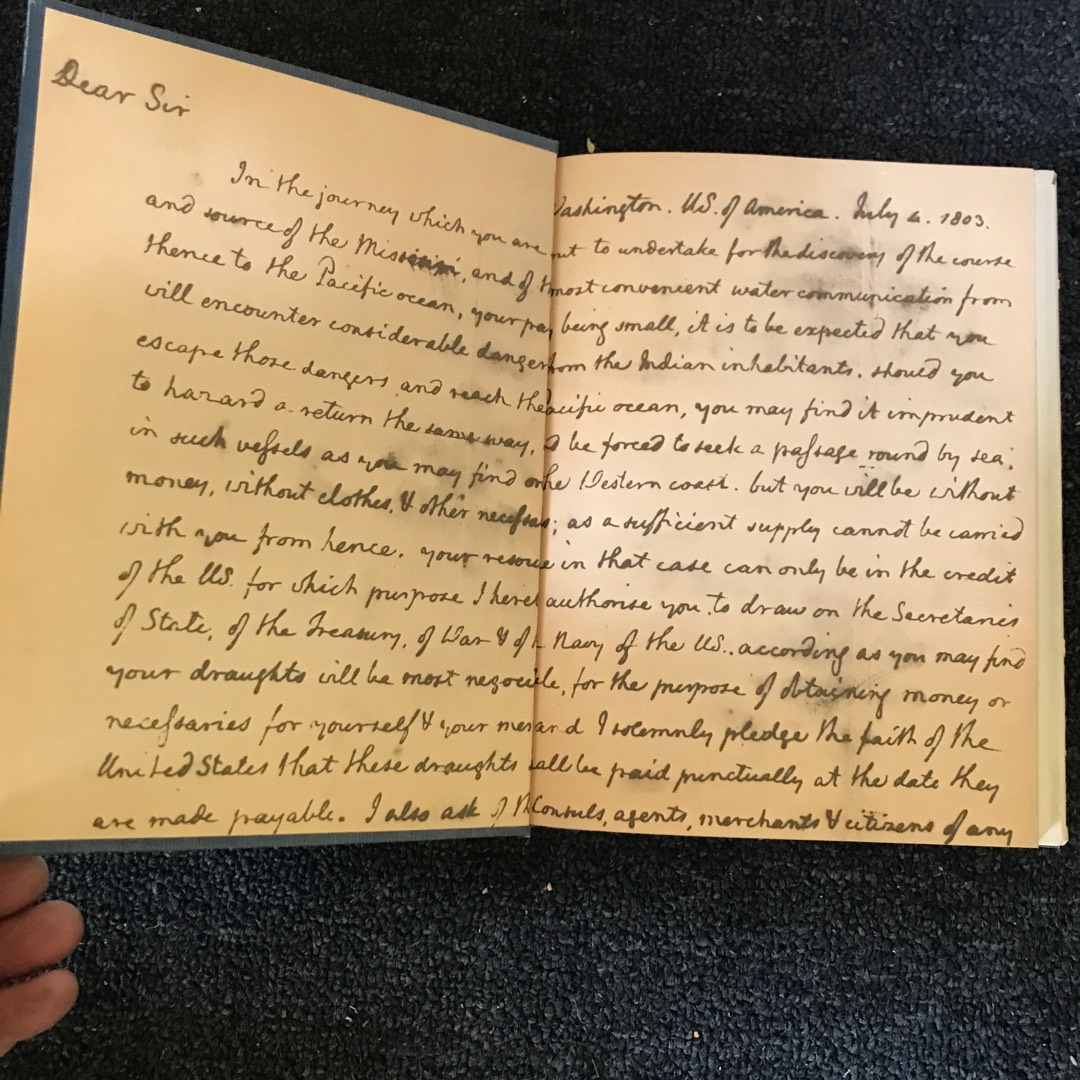 Dear Sir
Washington. US. of America. July 4. 1803.
In the journey which you are out to undertake for the discovery of the course
and source of the Missisipi, and of the most convenient water communication from
thence to the Pacific ocean, your par being small, it is to be expected that you
will encounter considerable dangers from the Indian inhabitants. should you
escape those dangers and reach the Pacific ocean, you may find it imprudent
to hazard a return the same way, & be forced to seek a passage round by sea,
in such vessels as you may find on the Western coast. but you will be without
money, without clothes, & other necessa; as a sufficient supply cannot be carried
with you from hence. your resource in that case can only be in the credit
of the US. for which purpose I hereby authorise you to draw on the Secretaries
of State, of the Treasury, of War & of the Navy of the US. according as you may find
your draughts will be most negociable, for the purpose of obtaining money or
necessaries for yourself & your men: and I solemnly pledge the faith of the
United States that these draughts shall be paid punctually at the date they
are made payable. I also ask of the Consuls, agents, merchants & citizens of any